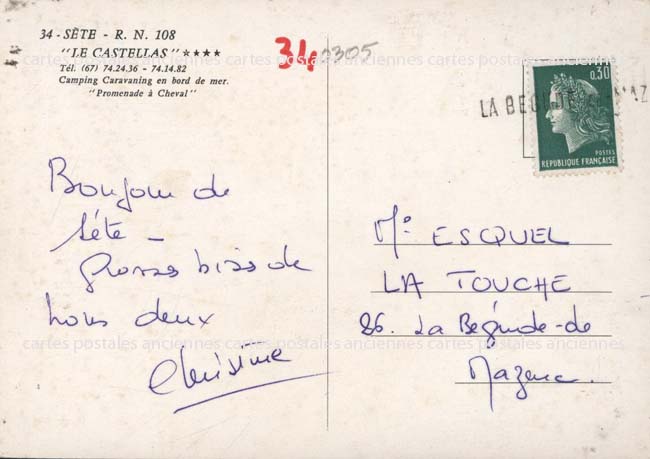 34 - SÈTE - R. N. 108
"LE CASTELLAS" ★★★★
Tél. (67) 74.24.36 - 74.14.82
Camping Caravaning en bord de mer.
"Promenade à Cheval"
34
2305
0,30
POSTES
REPUBLIQUE FRANÇAISE
LA BEGUDE
Bonjour de
Séte -
grosses bises de
nous deux
Christine
cartes postales anciennes cartes postales anciennes cartes postales anciennes
cartes postales anciennes cartes postales anciennes cartes postales anciennes
Mr ESQUEL
LA TOUCHE
26. La Bégude-de
Mazenc.